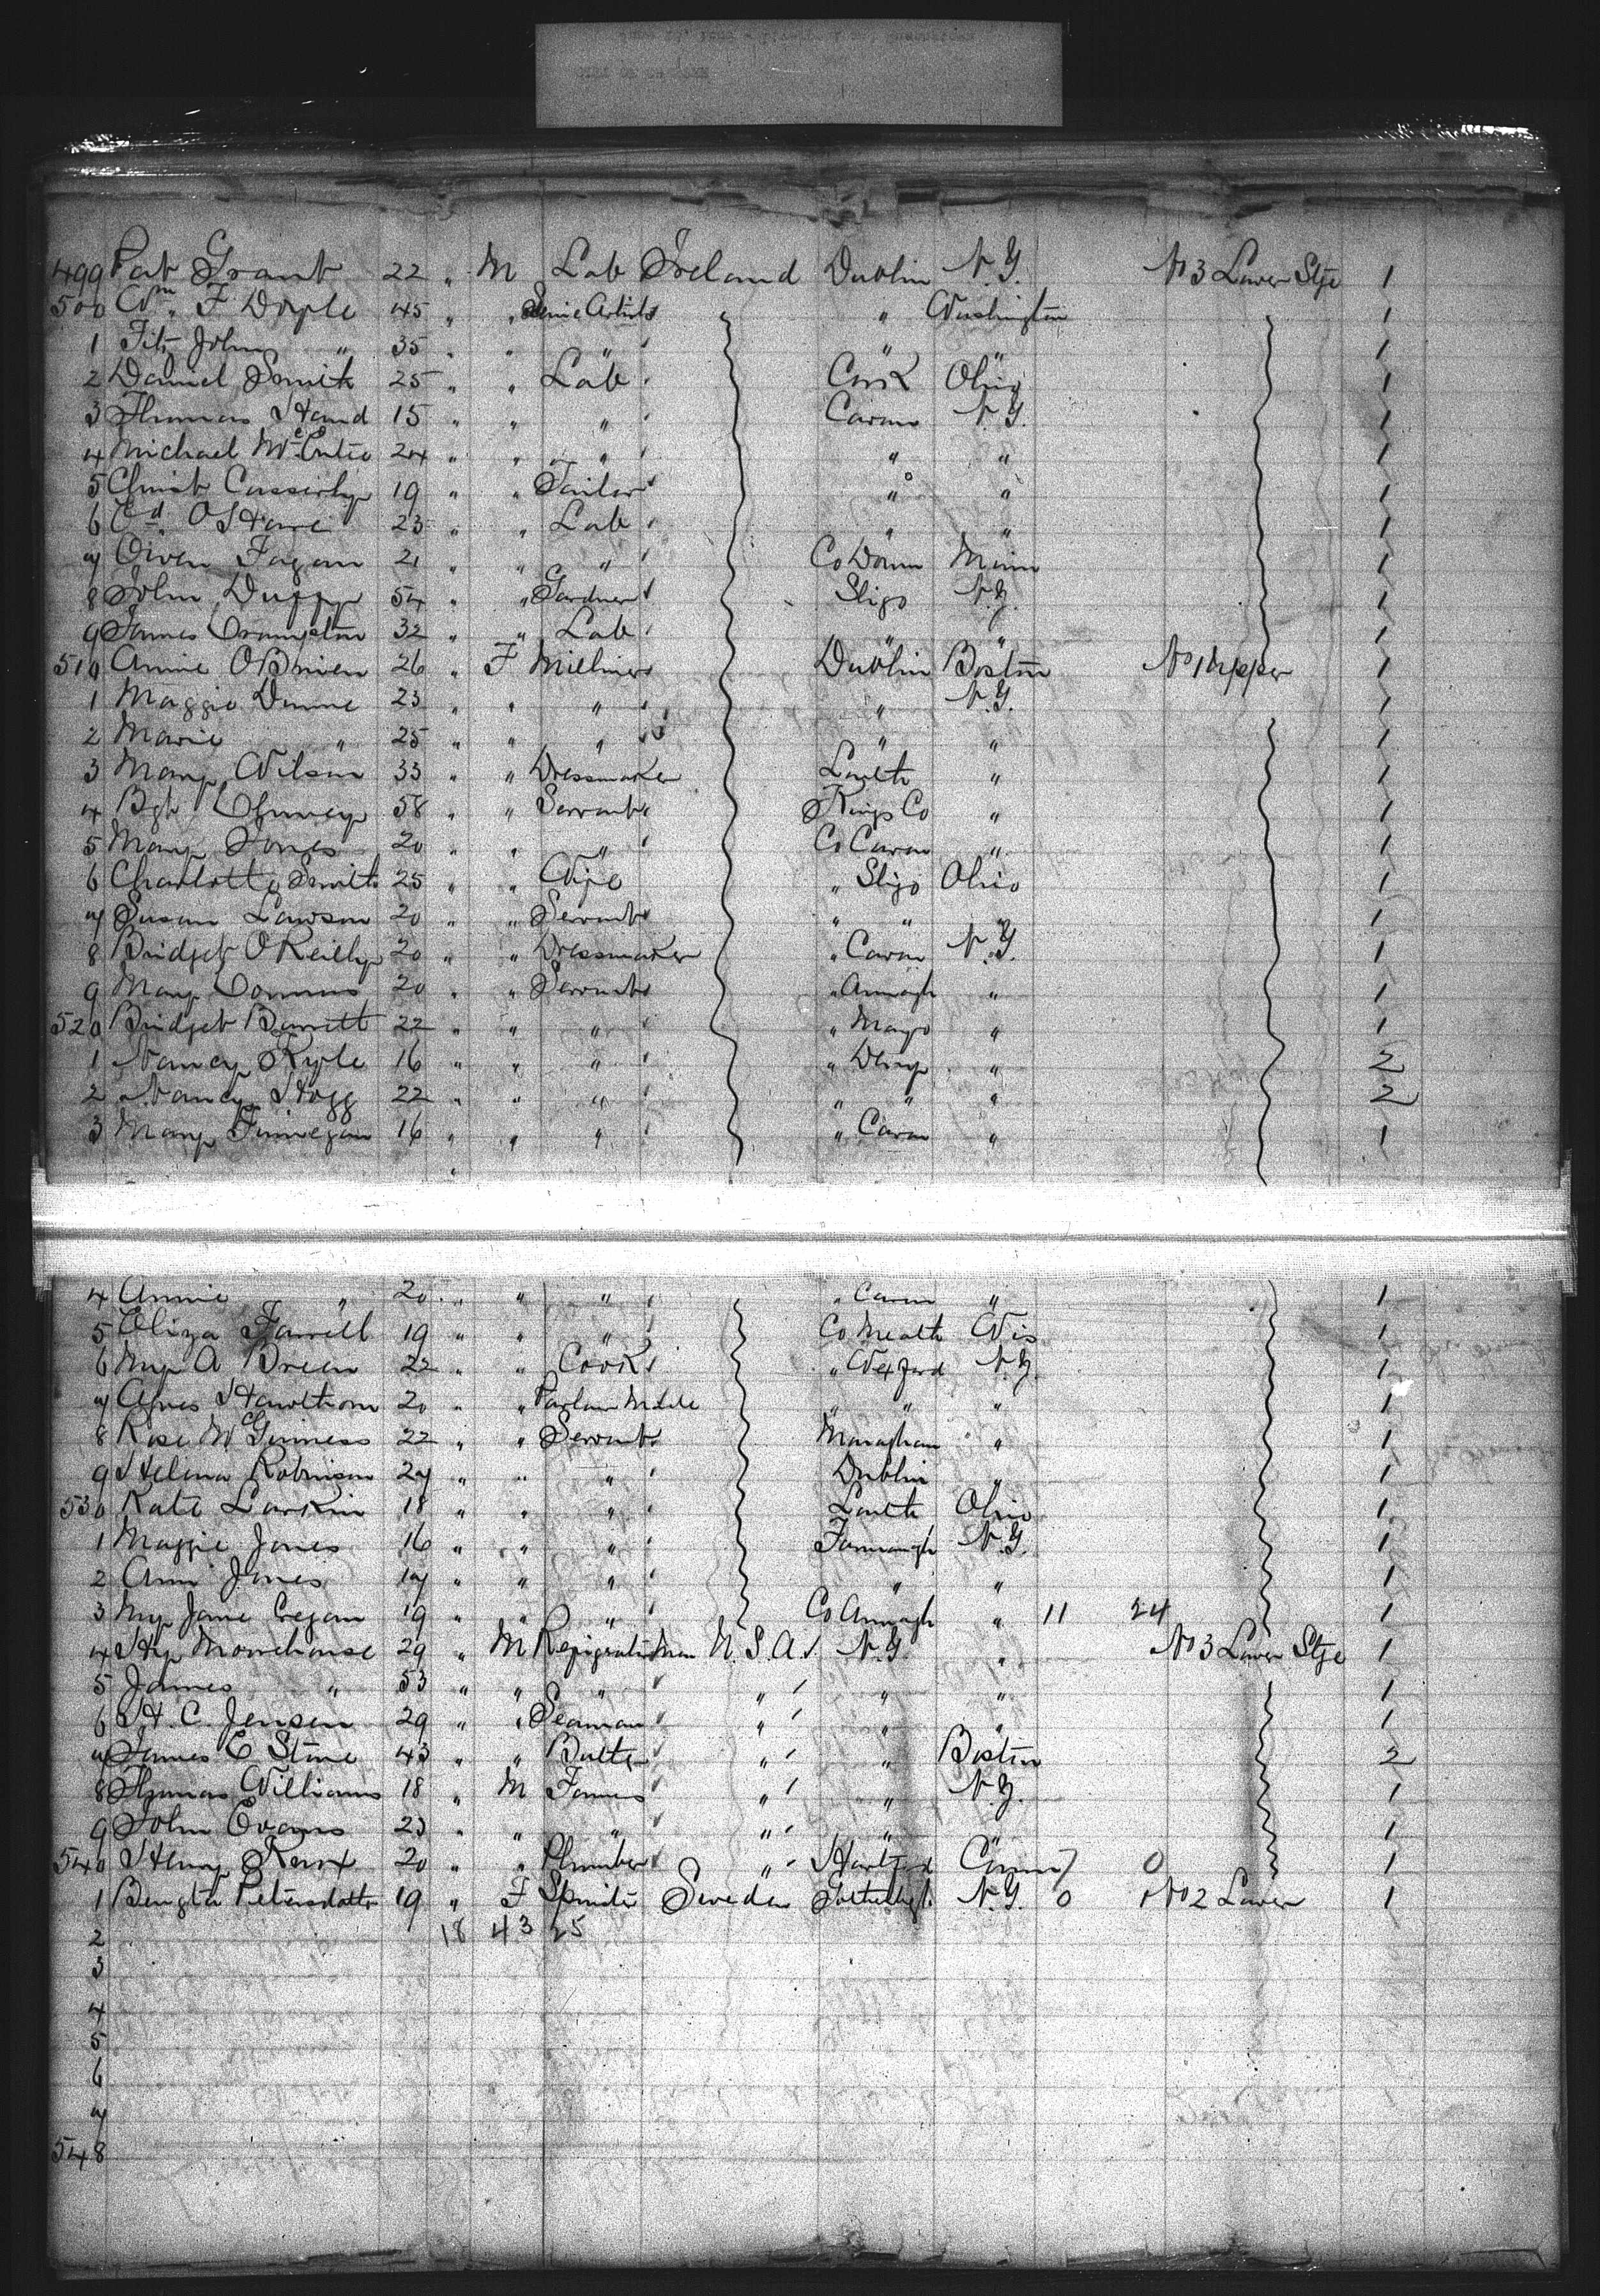 499 Pat Grant 22 " M Lab Ireland Dublin N.Y. No 3 Lower Stge 1
500 Wm. F Doyle 45 " " Scenic Artist " Washington 1
1 Fitz John " 35 " " " " " 1
2 Daniel Smith 25 " " Lab Cork Ohio 1
3 Thomas Hand 15 " " " Cavan N.Y. 1
4 Michael McEntee 24 " " " " " 1
5 Christ Casserly 19 " " Tailor " " 1
6 Ed. O'Hare 23 " " Lab " " 1
7 Owen Fagan 21 " " " Co Down Minn 1
8 John Duffy 54 " " Gardner Sligo N.Y. 1
9 James Crampton 32 " " Lab " " 1
510 Annie O'Brien 26 " F Milliner Dublin Boston No 1 Upper 1
1 Maggie Dunne 23 " " " " N.Y. 1
2 Marie " 25 " " " " " 1
3 Mary Wilson 33 " " Dressmaker Louth " 1
4 Bgt 58 " " Servant Kings Co " 1
5 Mary Jones 20 " " " Co Cavan " 1
6 Charlotte Smith 25 " " Wife " Sligo Ohio 1
7 Susan Lawson 20 " " Servant " " " 1
8 Bridget O'Reilly 20 " " Dressmaker " Cavan N.Y. 1
9 Mary 20 " " Servant " Armagh " 1
520 Bridget Barrett 22 " " " " Mayo " 1
1 Nancy Kyle 16 " " " " Derry " 2
2 Nancy Hogg 22 " " " " " " 2
3 Mary Finnegan 16 " " " " Cavan " 1
4 Annie " 20 " " " " Cavan " 1
5 Eliza Farrell 19 " " " Co Meath Wis 1
6 My A Breen 22 " " Cook " Wexford N.Y. 1
7 Agnes Hawthorn 20 " " Parlour " " " 1
8 Rose McGinness 22 " " Servant Monaghan " 1
9 Helena Robinson 27 " " " Dublin " 1
530 Kate Larkin 18 " " " Louth Ohio 1
1 Maggie Jones 16 " " " Farmanagh N.Y. 1
2 Ann Jones 17 " " " " " 1
3 My Jane Cregan 19 " " " Co Armagh " 11 24 1
4 Hy Morehouse 29 " M U.S.A. N.Y. " No 3 Lower Stge 1
5 James " 53 " " " " " " 1
6 H. C. Jensen 29 " " Seaman " " " 1
7 James E Stone 43 " " Butler " " Boston 2
8 Thomas Williams 18 " M " " N.Y. 1
9 John Evans 23 " " " " " " 1
540 Henry 20 " " Plumber " Hartford Conn 7 0 1
1 Bengta Petersdatter 19 " F Spinster Sweden N.Y. 0 1 No 2 Lower 1
2 18 43 25
3
4
5
6
7
548